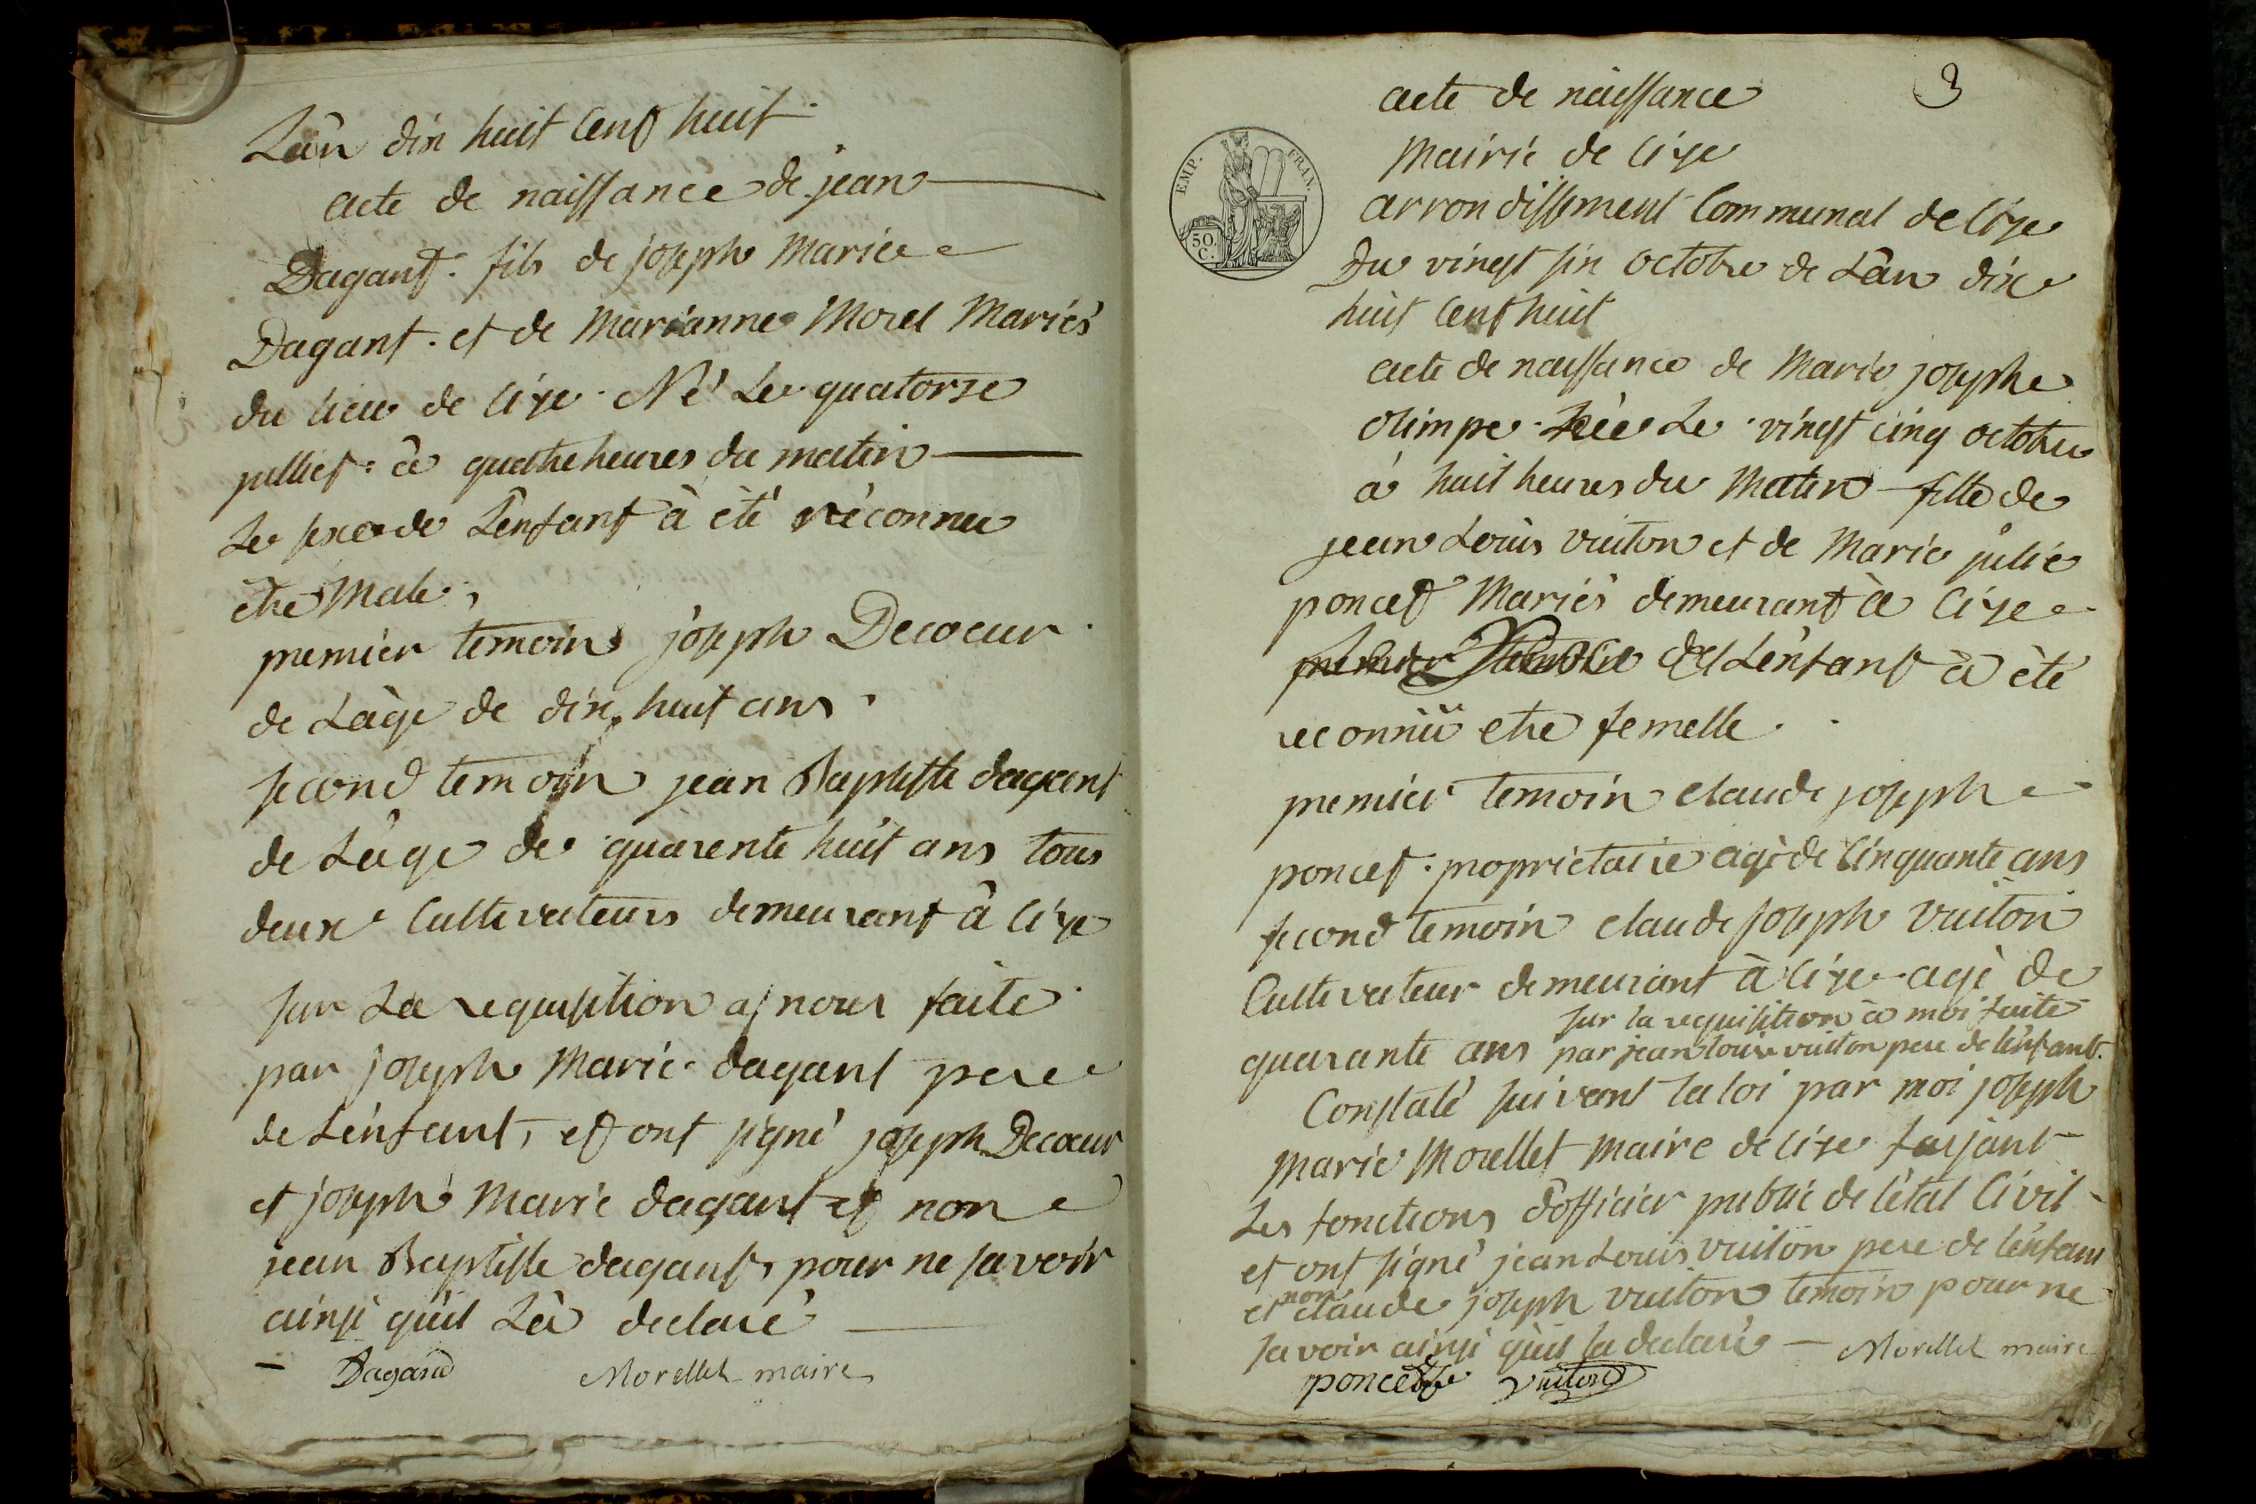 L'ân dix huit cent huit
acte de naissance de jean
Dagant. fils de joseph Marie
Dagant. et de Marianne Morel Mariés
du lieu de lize. Né Le quatorze
julliet. à quatre heures du matin
Le sexe de L'enfant à été réconnu
etre Male,
premier temoin joseph Decoeur
de L'âge de dix huit ans.
second temoin jean Baptiste dagant
de L'âge de quarente huit ans tous
deux Cultivateurs demeurant à lize
sur La requisition a nous faite
par joseph Marie dagant pere
de L'enfant, et ont signé joseph Decoeur
et joseph Marie dagant et non
jean Baptiste dagant, pour ne savoir
ainsi qu'il L'à declaré
Dagand Morellet maire
3
acte de naissance
Mairie de lize
EMP. FRAN.
50. C.
arrondissement Communal de lize
Du vingt six octobre de L'ân dix
huit cent huit
acte de naissance de Marie josephe
olimpe Née Le vingt cinq octobre
à huit heures du Matin fille de
jean Louis vuiton et de Marie julie
poncet Mariés demeurant à lize
L'enfant à été
reconnü etre femelle.
premier temoin claude joseph
poncet. proprietaire agé de Cinquante ans
second temoin claude joseph vuiton
Cultivateur demeurant à lize agé de
sur la requisition à moi faite
quarante ans par jean louis vuiton pere de l'enfant.
Constaté suivant la loi par moi joseph
Marie Morellet Maire de lize faisant
Les fonctions d'officier public de l'état Civil
et ont signé jean Louis vuiton pere de l'enfant
et non claude joseph vuiton temoin pour ne
savoir ainsi qu'il la declaré Morellet maire
poncet vuiton